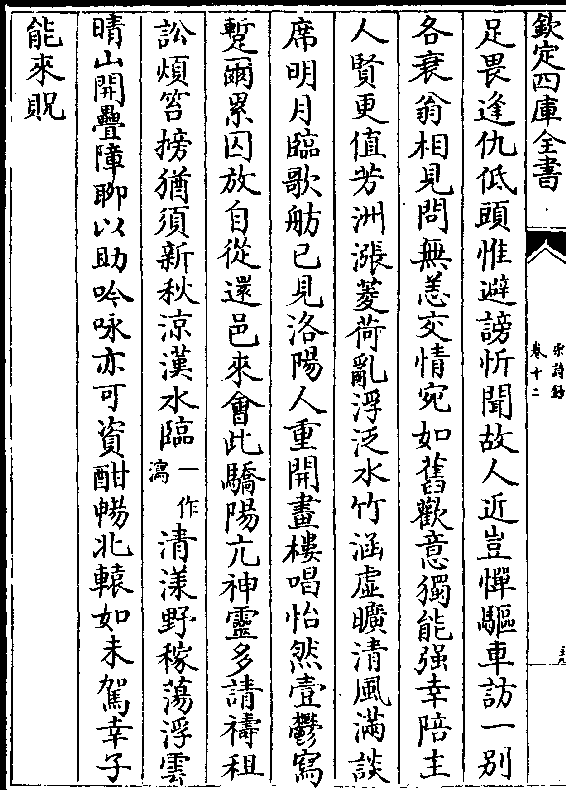 欽定四庫全書
宋詩鈔
卷十二
足畏逢仇低頭惟避謗忻聞故人近豈憚驅車訪一別
各衰翁相見問無恙交情宛如舊歡意獨能强幸陪主
人賢更值芳洲漲菱荷亂浮泛水竹涵虛曠清風滿談
席明月臨歌舫已見洛陽人重開畫樓唱怡然壹鬱寫
蹔爾累囚放自從還邑來會此驕陽亢神靈多請禱租
訟煩笞搒猶須新秋涼漢水臨一作漓清漾野稼蕩浮雲
晴山開疊障聊以助吟咏亦可資酣暢北轅如未駕幸子
能來貺